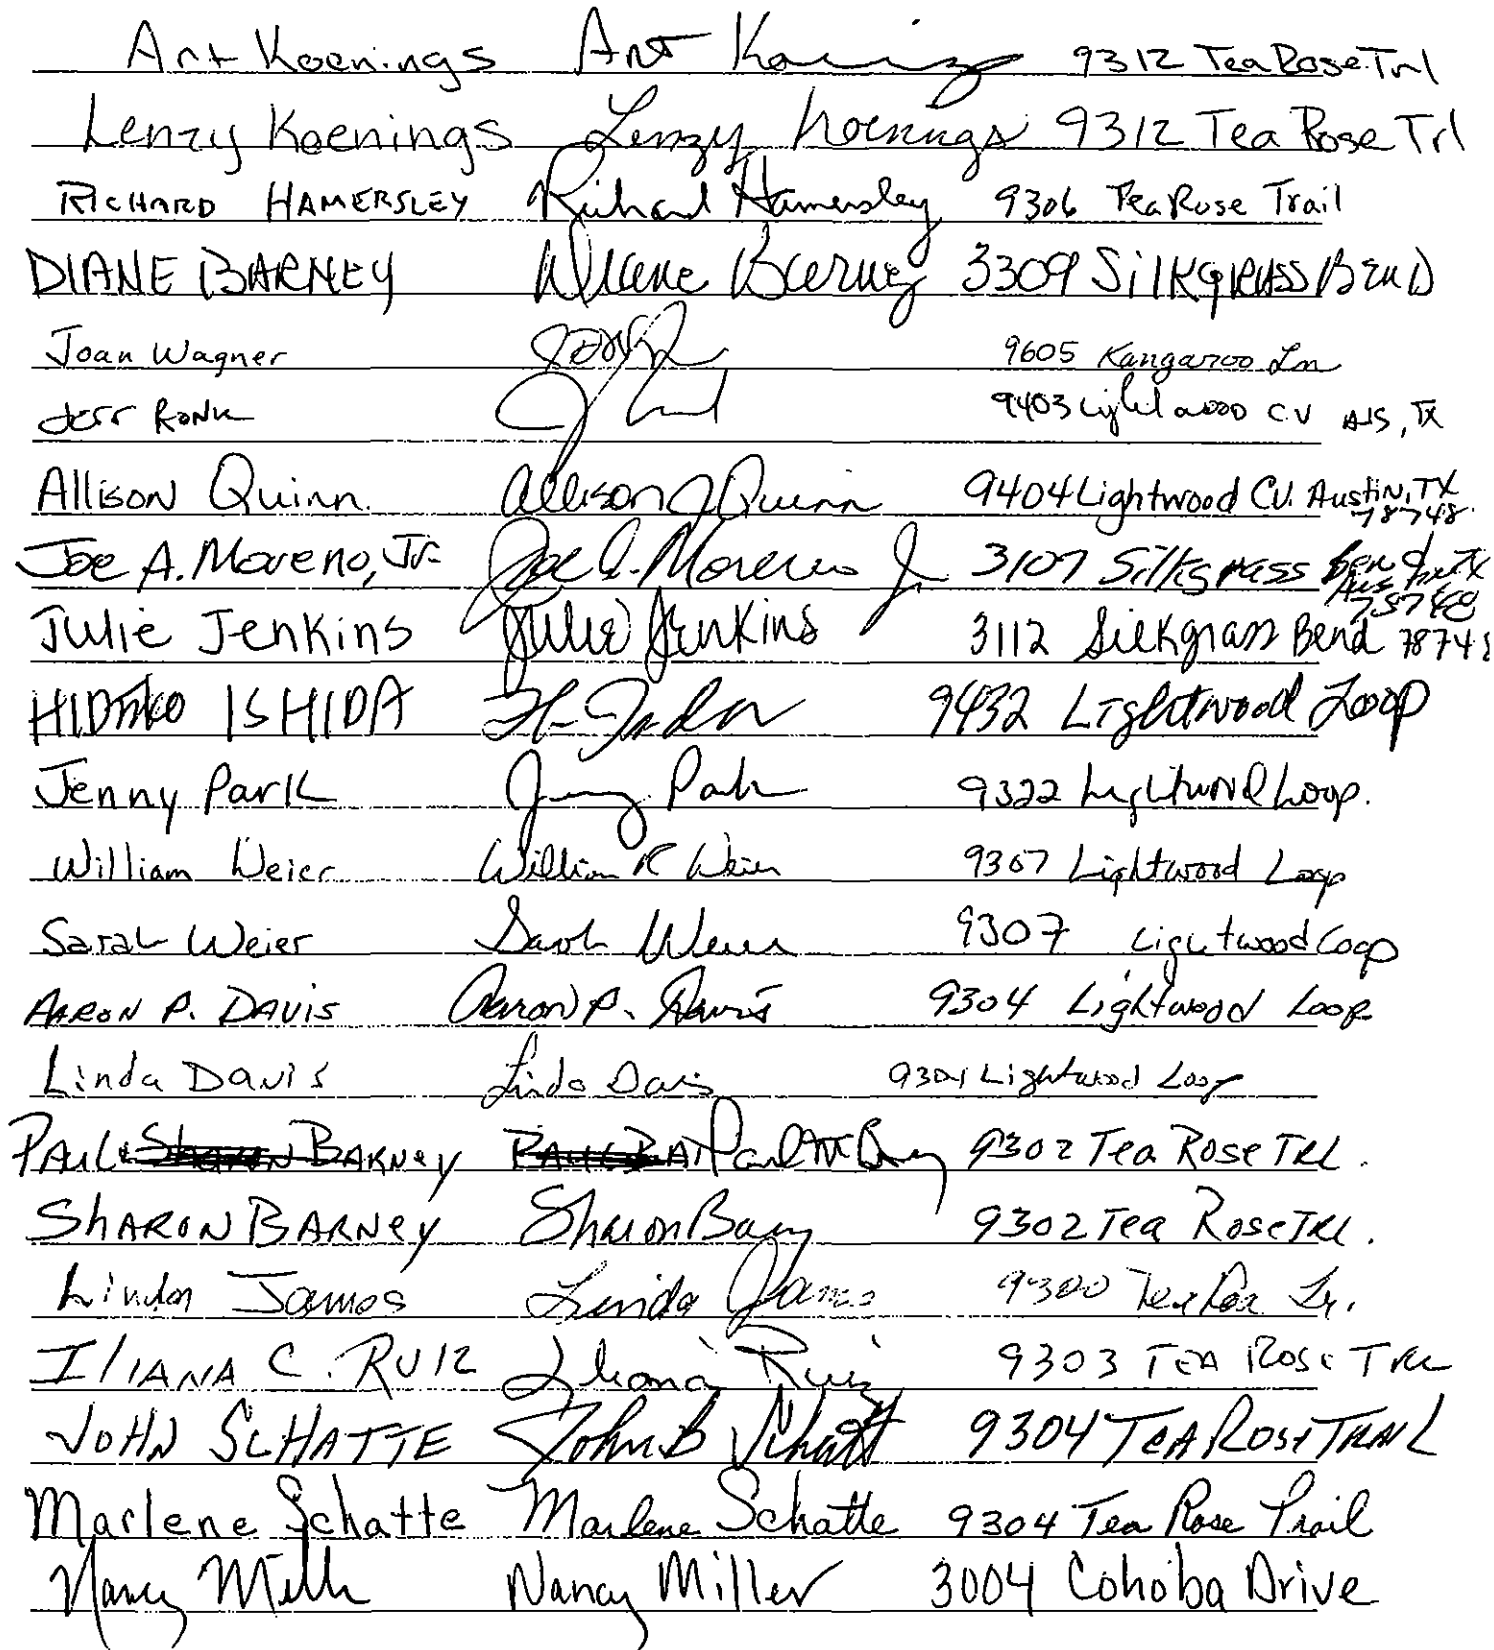 Art Koenings Art Koenings 9312 Tea Rose Trl
Lenzy Koenings Lenzy Koenings 9312 Tea Rose Trl
RICHARD HAMERSLEY Richard Hamersley 9306 Tea Rose Trail
DIANE BARNEY Diane Barney 3309 SilKgRASS BEND
Joan Wagner 9605 Kangaroo Ln
Jeff RONK 9403 Lightwood CV AUS, TX
Allison Quinn Allison J Quinn 9404 Lightwood CV. Austin, TX 78748
Joe A. Moreno, Jr. Joe A. Moreno Jr 3107 Silkgrass Bend Austin TX 78748
Julie Jenkins Julie Jenkins 3112 Silkgrass Bend 78748
ISHIDA 9432 Lightwood Loop
Jenny Park Jenny Park 9322 Lightwood Loop.
William Weier William R Weier 9307 Lightwood Loop
Sarah Weier Sarah Weier 9307 Lightwood Loop
AARON P. DAVIS Aaron P. Davis 9304 Lightwood Loop
Linda Davis Linda Davis 9304 Lightwood Loop
PAUL BARNEY Paul M Barney 9302 Tea Rose TRL.
SHARON BARNEY Sharon Barney 9302 Tea Rose TRL.
Linda James Linda James 9300 Tea Rose Tr.
ILIANA C. RUIZ Iliana Ruiz 9303 TEA ROSE TRL
JOHN SCHATTE John B Schatte 9304 TEA ROSE TRAIL
Marlene Schatte Marlene Schatte 9304 Tea Rose Trail
Nancy Miller Nancy Miller 3004 Cohoba Drive